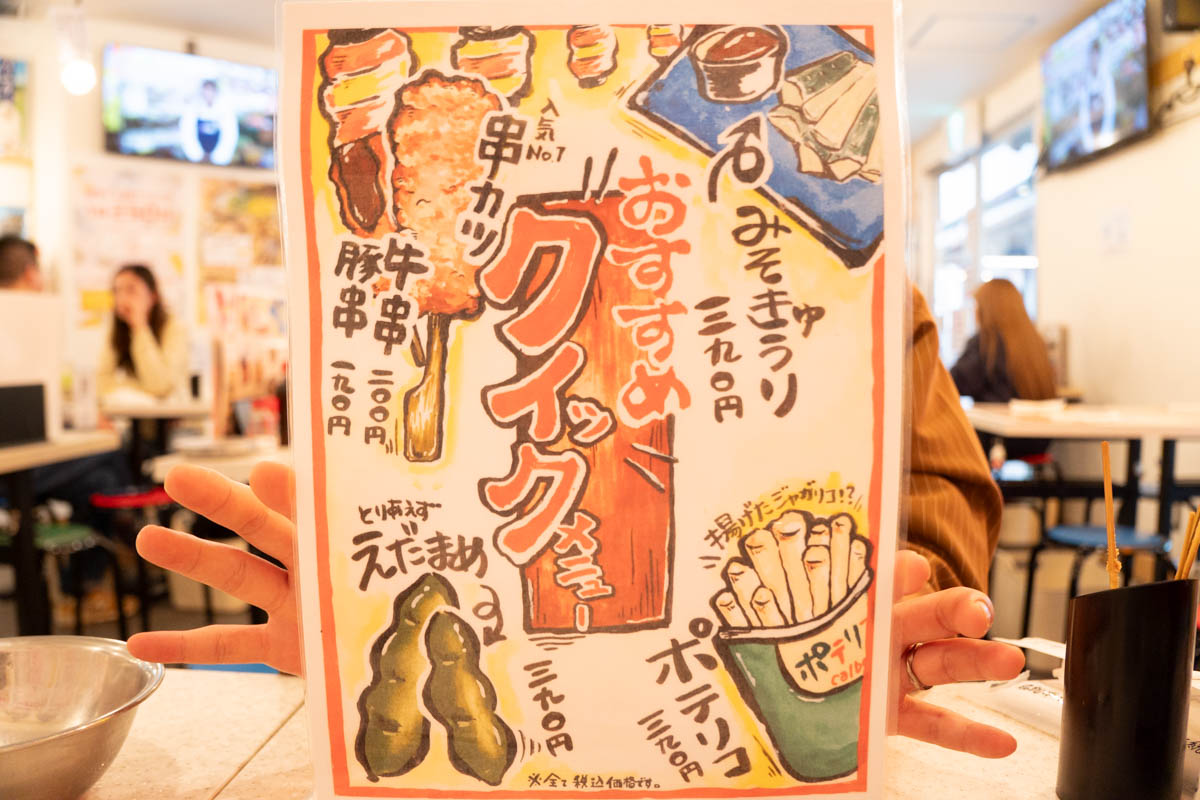 おすすめ
クイックメニュー
みそきゅうり
三九〇円
人気No.1
串カツ
牛串 二〇〇円
豚串 一九〇円
とりあえず
えだまめ
三九〇円
揚げたジャガリコ!?
ポテリコ
三九〇円
ポテリ
calb
※全て税込価格です。